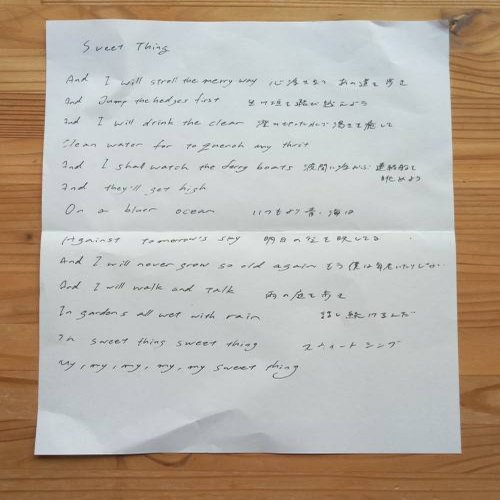 Sweet Thing
And I will stroll the merry way 心浮き立つ あの道を歩き
And Jump the hedges first 生け垣を飛び越えよう
And I will drink the clear 澄み 渇きを癒して
Clean water for to quench my thirst
And I shal watch the ferry boats 波間に 連絡船を眺めよう
And they'll get high
On a bluer ocean いつもより青い海は
Against tomorrow's sky 明日の空を映してる
And I will never grow so old again もう僕は年老いたりしない
And I will walk and talk 雨の庭を歩き
In gardens all wet with rain 話し続けるんだ
Oh sweet thing sweet thing スウィートシング
My, my, my, my, my sweet thing